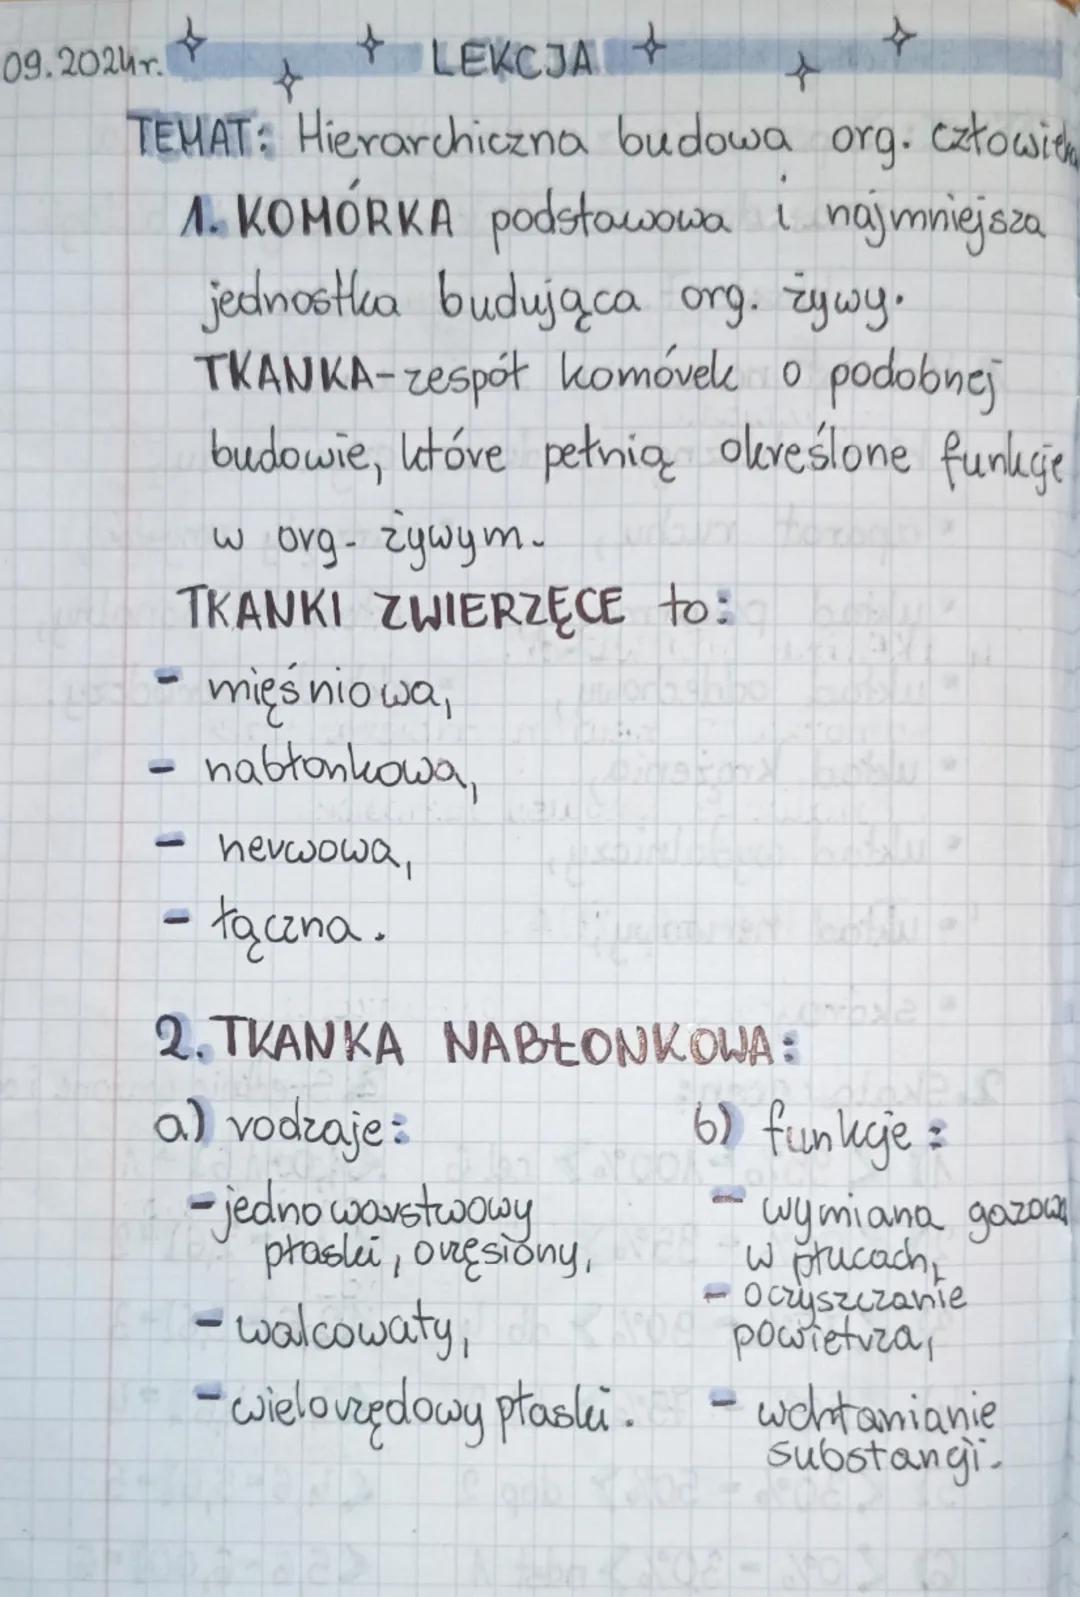 09.2024r. LEKCJA
TEMAT: Hierarchiczna budowa org. człowieka
1. KOMÓRKA podstawowa i najmniejsza
jednostka budująca org. żywy.
TKANKA-zespół komórek o podobnej
budowie, które pełnią określone funkcje
w org. żywym.
TKANKI ZWIERZĘCE to:
- mięśniowa,
- nabłonkowa,
- nerwowa,
- łączna.
2. TKANKA NABŁONKOWA:
a) rodzaje:
- jednowarstwowy
płaski, orzęsiony,
- walcowaty,
- wielorzędowy płaski.
b) funkcje:
- wymiana gazowa
w płucach,
- oczyszczanie
powietrza,
- wchłanianie
substancji.